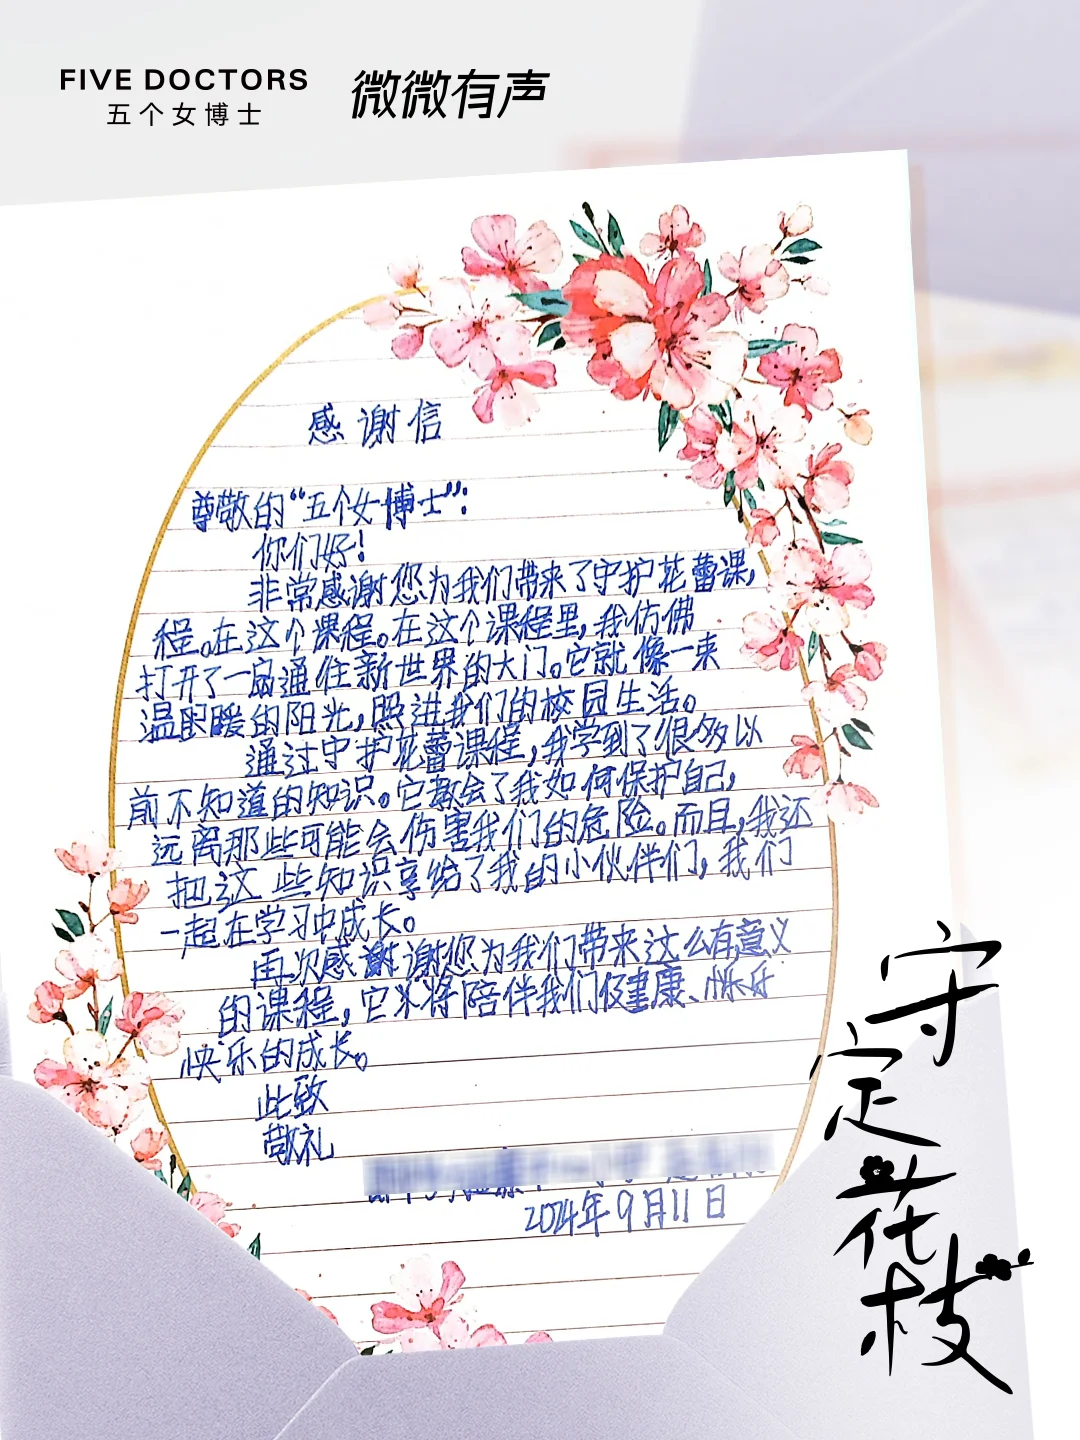 FIVE DOCTORS
五个女博士
微微有声
感谢信
尊敬的“五个女博士”:
你们好!
非常感谢您为我们带来了守护花蕾课,
程。在这个课程。在这个课程里,我仿佛
打开了一扇通住新世界的大门。它就像一束
温暖的阳光,照进我们的校园生活。
通过守护花蕾课程,我学到了很多以
前不知道的知识。它教会了我如何保护自己,
远离那些可能会伤害我们的危险。而且,我还
把这些知识享给了我的小伙伴们,我们
一起在学习中成长。
再次感谢谢您为我们带来这么有意义
的课程,它将陪伴我们健康、快乐
快乐的成长。
此致
敬礼
2024年9月11日
守定花枝